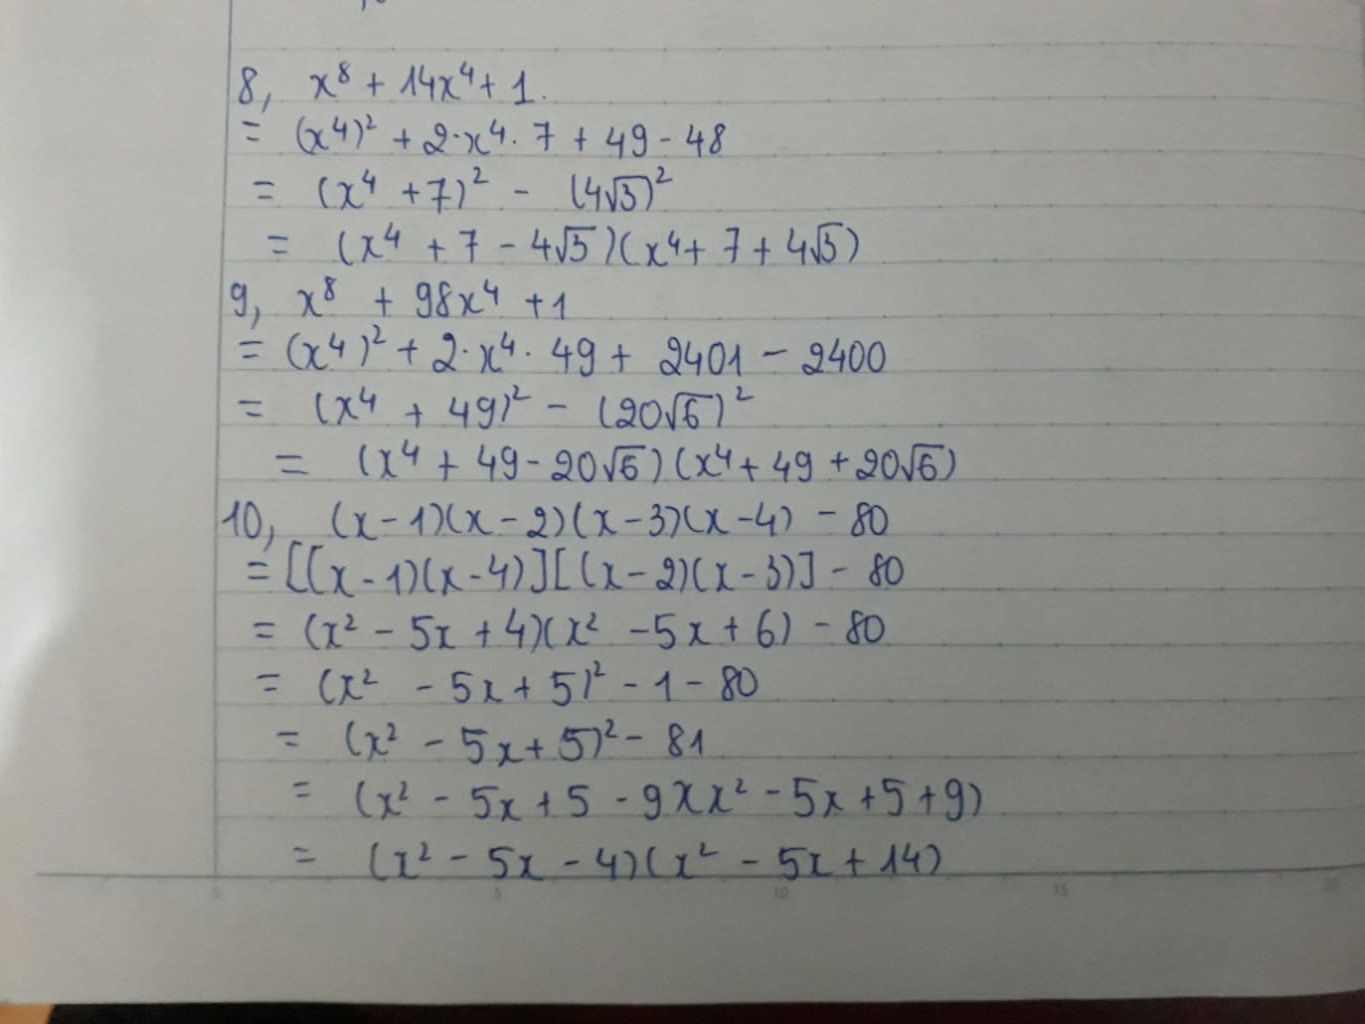 8, x⁸ + 14x⁴ + 1.
= (x⁴)² + 2·x⁴·7 + 49 - 48
= (x⁴ + 7)² - (4√3)²
= (x⁴ + 7 - 4√3)(x⁴ + 7 + 4√3)
9, x⁸ + 98x⁴ + 1
= (x⁴)² + 2·x⁴·49 + 2401 - 2400
= (x⁴ + 49)² - (20√6)²
= (x⁴ + 49 - 20√6)(x⁴ + 49 + 20√6)
10, (x - 1)(x - 2)(x - 3)(x - 4) - 80
= [(x - 1)(x - 4)][(x - 2)(x - 3)] - 80
= (x² - 5x + 4)(x² - 5x + 6) - 80
= (x² - 5x + 5)² - 1 - 80
= (x² - 5x + 5)² - 81
= (x² - 5x + 5 - 9)(x² - 5x + 5 + 9)
= (x² - 5x - 4)(x² - 5x + 14)
5 10 15 20